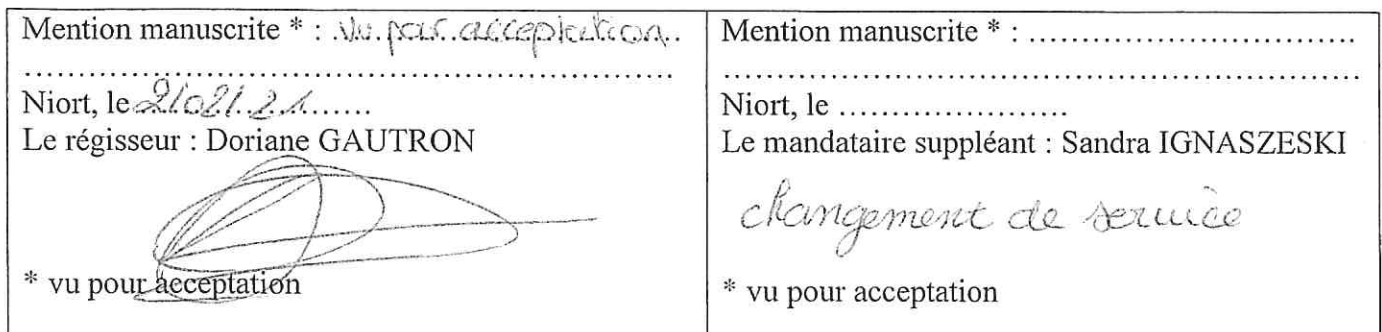 Mention manuscrite * : vu pour acceptation..
........................................................................
Niort, le 2/02/21.......
Le régisseur : Doriane GAUTRON
* vu pour acceptation
Mention manuscrite * : ..............................
........................................................................
Niort, le ......................
Le mandataire suppléant : Sandra IGNASZESKI
changement de service
* vu pour acceptation